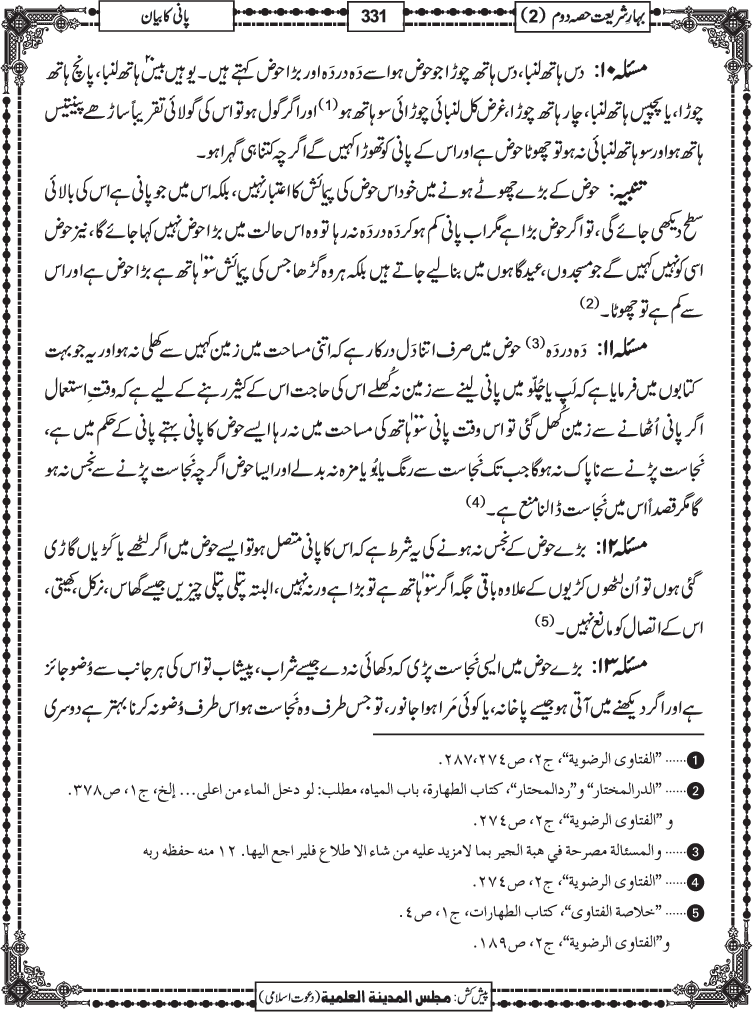 بہارِ شریعت حصہ دوم (2)
331
پانی کا بیان
مسئلہ ۱۰: دس ہاتھ لنبا، دس ہاتھ چوڑا جو حوض ہو اسے دَہ در دَہ اور بڑا حوض کہتے ہیں۔ یوہیں بیس۲۰ ہاتھ لنبا، پانچ ہاتھ
چوڑا، یا پچیس ہاتھ لنبا، چار ہاتھ چوڑا، غرض کل لنبائی چوڑائی سو ہاتھ ہو (1) اور اگر گول ہو تو اس کی گولائی تقریباً ساڑھے پینتیس
ہاتھ ہو اور سو ہاتھ لنبائی نہ ہو تو چھوٹا حوض ہے اور اس کے پانی کو تھوڑا کہیں گے اگرچہ کتنا ہی گہرا ہو۔
تنبیہ: حوض کے بڑے چھوٹے ہونے میں خود اس حوض کی پیمائش کا اعتبار نہیں، بلکہ اس میں جو پانی ہے اس کی بالائی
سطح دیکھی جائے گی، تو اگر حوض بڑا ہے مگر اب پانی کم ہو کر دَہ در دَہ نہ رہا تو وہ اس حالت میں بڑا حوض نہیں کہا جائے گا، نیز حوض
اسی کو نہیں کہیں گے جو مسجدوں، عیدگاہوں میں بنا لیے جاتے ہیں بلکہ ہر وہ گڑھا جس کی پیمائش سو۱۰۰ ہاتھ ہے بڑا حوض ہے اور اس
سے کم ہے تو چھوٹا۔ (2)
مسئلہ ۱۱: دَہ در دَہ (3) حوض میں صرف اتنا دَل درکار ہے کہ اتنی مساحت میں زمین کہیں سے کھلی نہ ہو اور یہ جو بہت
کتابوں میں فرمایا ہے کہ لَپ یا چُلّو میں پانی لینے سے زمین نہ کُھلے اس کی حاجت اس کے کثیر رہنے کے لیے ہے کہ وقتِ استعمال
اگر پانی اُٹھانے سے زمین کُھل گئی تو اس وقت پانی سو۱۰۰ ہاتھ کی مساحت میں نہ رہا ایسے حوض کا پانی بہتے پانی کے حکم میں ہے،
نَجاست پڑنے سے ناپاک نہ ہوگا جب تک نَجاست سے رنگ یا بُو یا مزہ نہ بدلے اور ایسا حوض اگرچہ نَجاست پڑنے سے نَجِس نہ ہو
گا مگر قصداً اس میں نَجاست ڈالنا منع ہے۔ (4)
مسئلہ ۱۲: بڑے حوض کے نجس نہ ہونے کی یہ شرط ہے کہ اس کا پانی متصل ہو تو ایسے حوض میں اگر لٹھے یا کَڑیاں گاڑی
گئی ہوں تو اُن لٹھوں کڑیوں کے علاوہ باقی جگہ اگر سو۱۰۰ ہاتھ ہے تو بڑا ہے ورنہ نہیں، البتہ پتلی پتلی چیزیں جیسے گھاس، نرکل، کھیتی،
اس کے اتصال کو مانع نہیں۔ (5)
مسئلہ ۱۳: بڑے حوض میں ایسی نَجاست پڑی کہ دکھائی نہ دے جیسے شراب، پیشاب تو اس کی ہر جانب سے وُضو جائز
ہے اور اگر دیکھنے میں آتی ہو جیسے پاخانہ، یا کوئی مَرا ہوا جانور، تو جس طرف وہ نَجاست ہو اس طرف وُضو نہ کرنا بہتر ہے دوسری
1 ...... "الفتاوی الرضویة"، ج۲، ص۲۸۷،۲۷٤.
2 ...... "الدرالمختار" و "ردالمحتار"، کتاب الطھارة، باب المیاہ، مطلب: لو دخل الماء من اعلی... إلخ، ج۱، ص۳۷۸.
و "الفتاوی الرضویة"، ج۲، ص۲۷٤.
3 ...... والمسئالة مصرحة في هبة الجیر بما لامزید علیه من شاء الا طلاع فلیر اجع الیها. ۱۲ منه حفظه ربه
4 ...... "الفتاوی الرضویة"، ج۲، ص۲۷٤.
5 ...... "خلاصة الفتاوی"، کتاب الطھارات، ج۱، ص٤.
و"الفتاوی الرضویة"، ج۲، ص۱۸۹.
پیش کش: مجلس المدینة العلمیة (دعوت اسلامی)